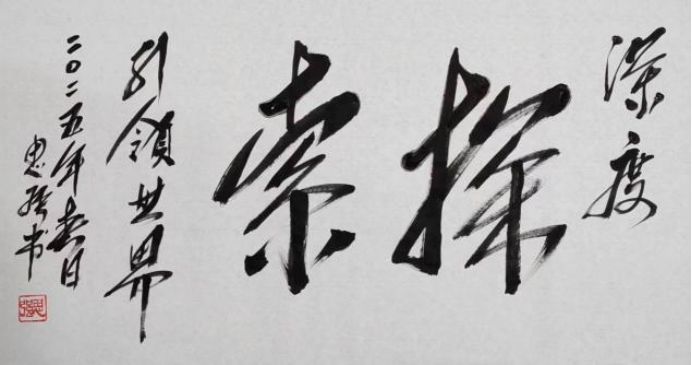 深度
探索
引领世界
二〇二五年春日
忠强书